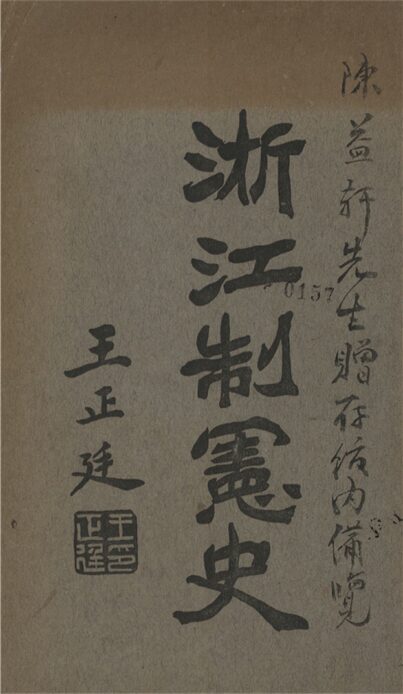 陳益軒先生贈存館內備覽
浙江制憲史
0157
王正廷
王印
正廷